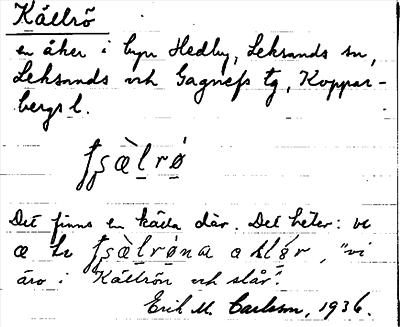 Källrö
en åker i byn Hedby, Leksands sn,
Leksands och Gagnefs tg, Koppar-
bergs l.
ʃsæ̀lrø
Det finns en källa där. Det heter: ve
æ ʃsæ̀lrøna
"vi
äro i Källrön och slår".
Erik M. Carlsson, 1936.